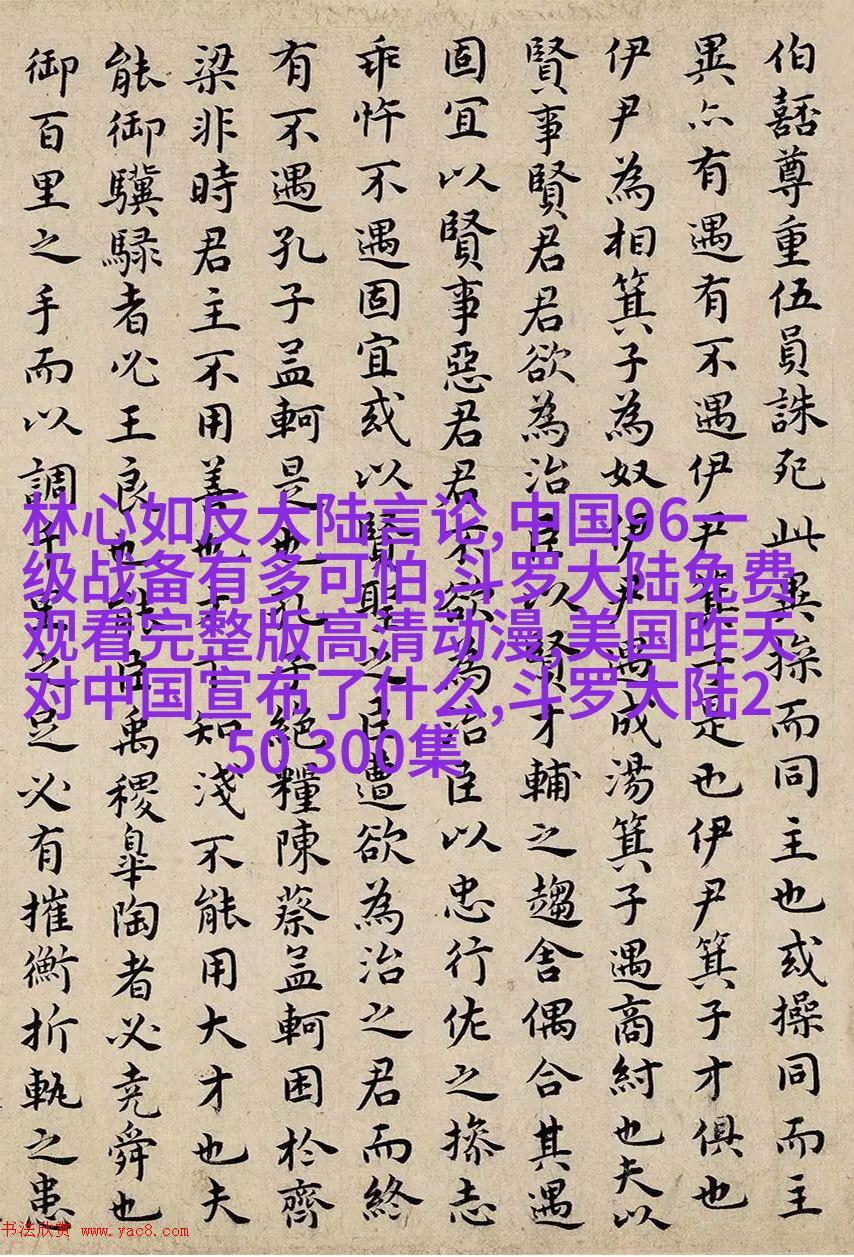 伯嚭尊重伍員誅死此異操而同主也或操同而主
異亦有遇有不遇伊尹箕子是也伊尹箕子才俱也
伊尹為相箕子為奴伊尹遇成湯箕子遇商紂也夫以
賢事賢君君欲為治臣以賢才輔之趨舍偶合其遇
固宜以賢事惡君君不欲為治臣以忠行佐之操志
乖忤不遇固宜或以賢聖之臣遭欲為治之君而終
有不遇孔子孟軻是也孔子絕糧陳蔡孟軻困於齊
梁非時君主不用善也才下知淺不能用大才也夫
能御驥騄者必王良也能臣禹稷皋陶者必堯舜也
御百里之手而以調千里之足必有摧衡折軛之患
林心如反大陆言论,中国96一
级战备有多可怕,斗罗大陆免费
观看完整版高清动漫,美国昨天
对中国宣布了什么,斗罗大陆2
50 300集
书法欣赏 www.yac8.com